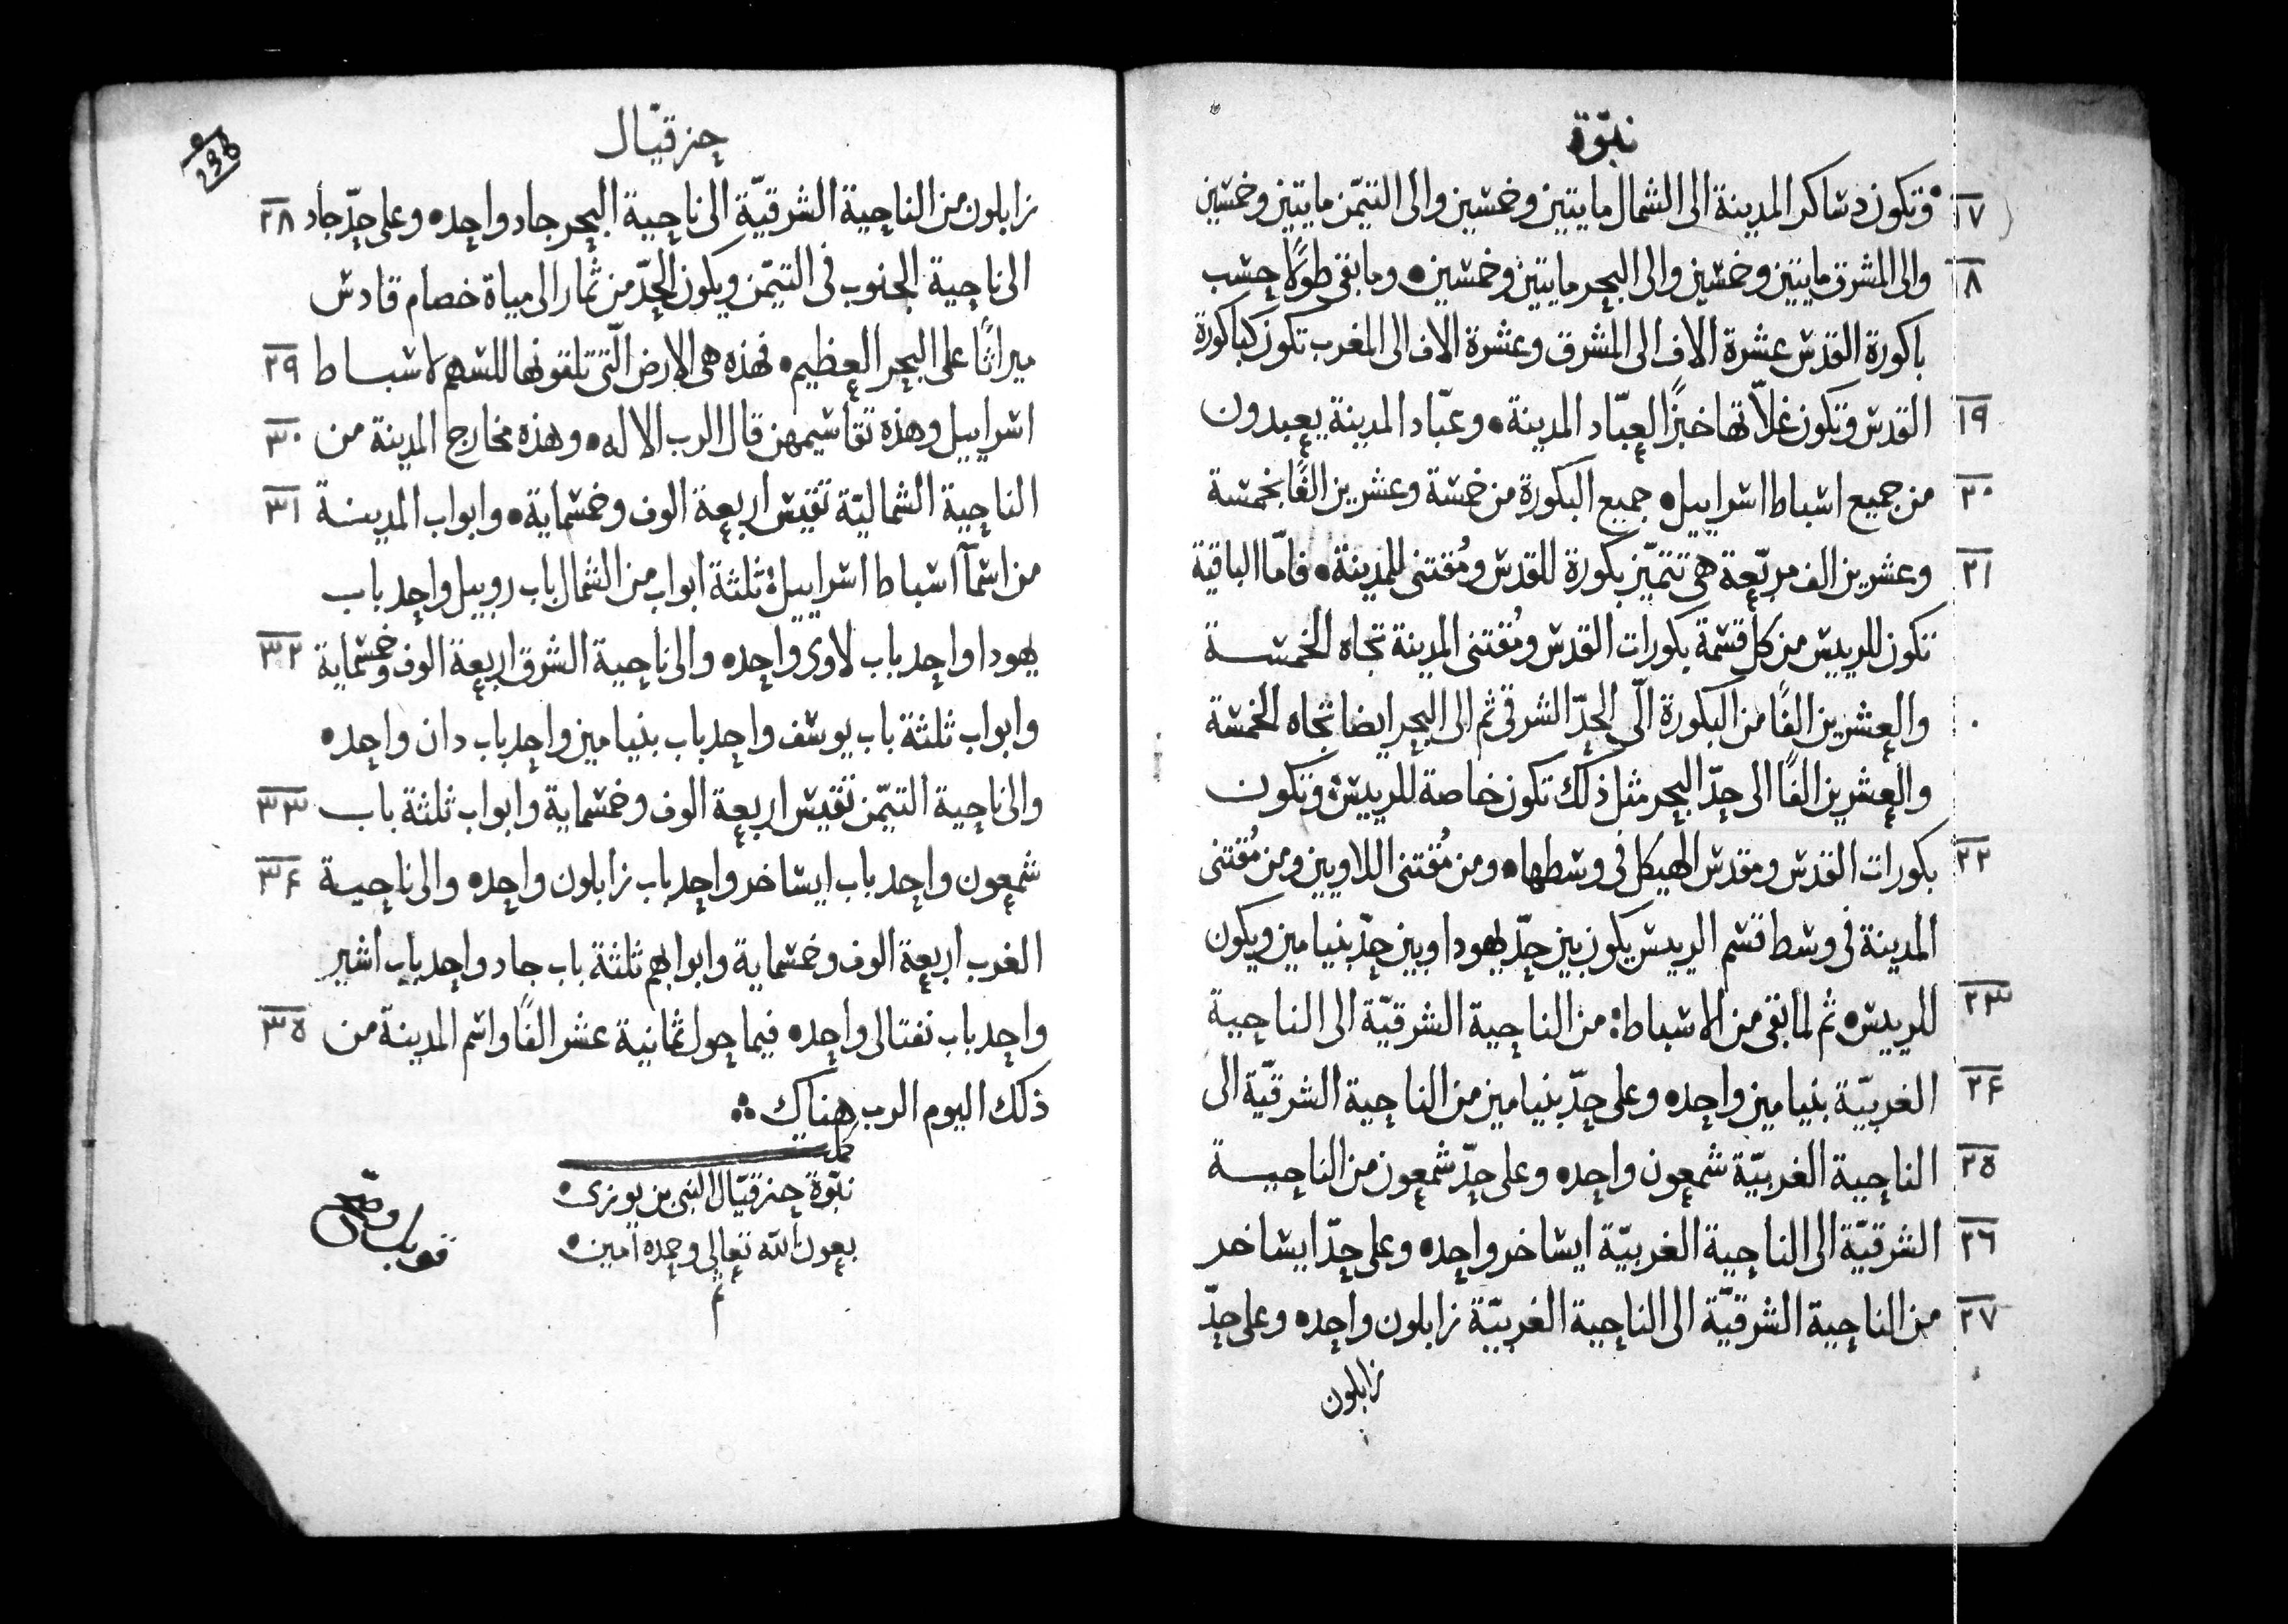 نبوّة
١٧ وتكون دساكر المدينة الى الشمال مايتين وخمسين والى التيمّن مايتين وخمسين
١٨ والى المشرق مايتين وخمسين والى البحر مايتين وخمسين• وما بقى طولًا حسب
باكورة القدس عشرة الاف الى المشرق وعشرة الاف الى المغرب تكون كباكورة
١٩ القدس وتكون غلّاتها خبزًا لعبّاد المدينة• وعبّاد المدينة يعبدون
٢٠ من جميع اسباط اسراييل• جميع البكورة من خمسة وعشرين الفًا بخمسة
٢١ وعشرين الف مربّعة هى تتميّز بكورة للقدس ومُقتنى للمدينة• فامّا الباقية
تكون للرييس من كل قسمة بكورات القدس ومُقتنى المدينة تجاه الخمسة
والعشرين الفًا من البكورة الى الحدّ الشرقى ثم الى البحر ايضا تجاه الخمسة
والعشرين الفًا الى حدّ البحر مثل ذلك تكون خاصة للرييس• وتكون
٢٢ بكورات القدس ومقدس الهيكل فى وسطها• ومن مُقتنى اللاويين ومن مُقتنى
المدينة فى وسط قسم الرييس يكون بين حدّ يهودا وبين حدّ بنيامين ويكون
٢٣ للرييس• ثم لما بقى من الاسباط: من الناحية الشرقيّة الى الناحية
٢٤ الغربيّة بنيامين واحد• وعلى حدّ بنيامين من الناحية الشرقيّة الى
٢٥ الناحية الغربيّة شمعون واحد• وعلى حدّ شمعون من الناحية
٢٦ الشرقيّة الى الناحية الغربيّة ايساخر واحد• وعلى حدّ ايساخر
٢٧ من الناحية الشرقيّة الى الناحية الغربيّة زابلون واحد• وعلى حدّ
زابلون
حزقيّال
236
زابلون من الناحية الشرقيّة الى ناحية البحر جاد واحد• وعلى حدّ جاد ٢٨
الى ناحية الجنوب فى التيمّن ويكون الحدّ من ثمار الى مياة خصام قادس
ميراثًا على البحر العظيم• فهذه هى الارض الّتى تلقونها للسهم لاسباط ٢٩
اسراييل وهذه تقاسيمهن قال الرب الاله• وهذه مخارج المدينة من ٣٠
الناحية الشماليّة تقيس اربعة الوف وخمسماية• وابواب المدينة ٣١
من اسمآ اسباط اسراييل: ثلثة ابواب من الشمال باب روبيل واحد باب
يهودا واحد باب لاوى واحد• والى ناحية الشرق اربعة الوف وخمسماية ٣٢
وابواب ثلثة باب يوسف واحد باب بنيامين واحد باب دان واحد•
والى ناحية التيمّن تقيس اربعة الوف وخمسماية وابواب ثلثة باب ٣٣
شمعون واحد باب ايساخر واحد باب زابلون واحد• والى ناحية ٣٤
الغرب اربعة الوف وخمسماية وابوابهم ثلثة باب جاد واحد باب اشير
واحد باب نفتالى واحد• فيما حول ثمانية عشر الفًا واسم المدينة من ٣٥
ذلك اليوم الرب هناك ؞
كمل
نبوّة حزقيّال النبى بن بوزى•
بعون الله تعالى وحمده امين•
تم
قوبل وصحّ